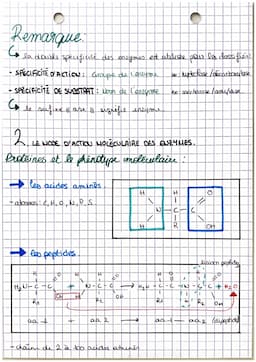 Remarque:
↳ la double spécificité des enzymes est utilisée pour les classifier
- SPÉCIFICITÉ D'ACTION : Groupe de l'enzyme
- SPÉCIFICITÉ DE SUBSTRAT : Nom de l'enzyme
↳ le suffixe « ase » signifie enzyme
2. LE MODE D'ACTION MOLÉCULAIRE DES ENZYMES.
Protéines et le phénotype moléculaire :
→ les acides aminés.
- atomes: C, H, O, N, P, S
H H O
N C C
H R OH
→ les peptides.
liaison peptidique
H₂N-C-C + N-C-C → H₂N-C-C-N-C-C + H₂O
R₁ OH H R₂ OH R₁ R₂ OH
aa 1 + aa 2 → aa 1 — aa 2 (dipeptide)
- chaîne de 2 à 100 acides aminés